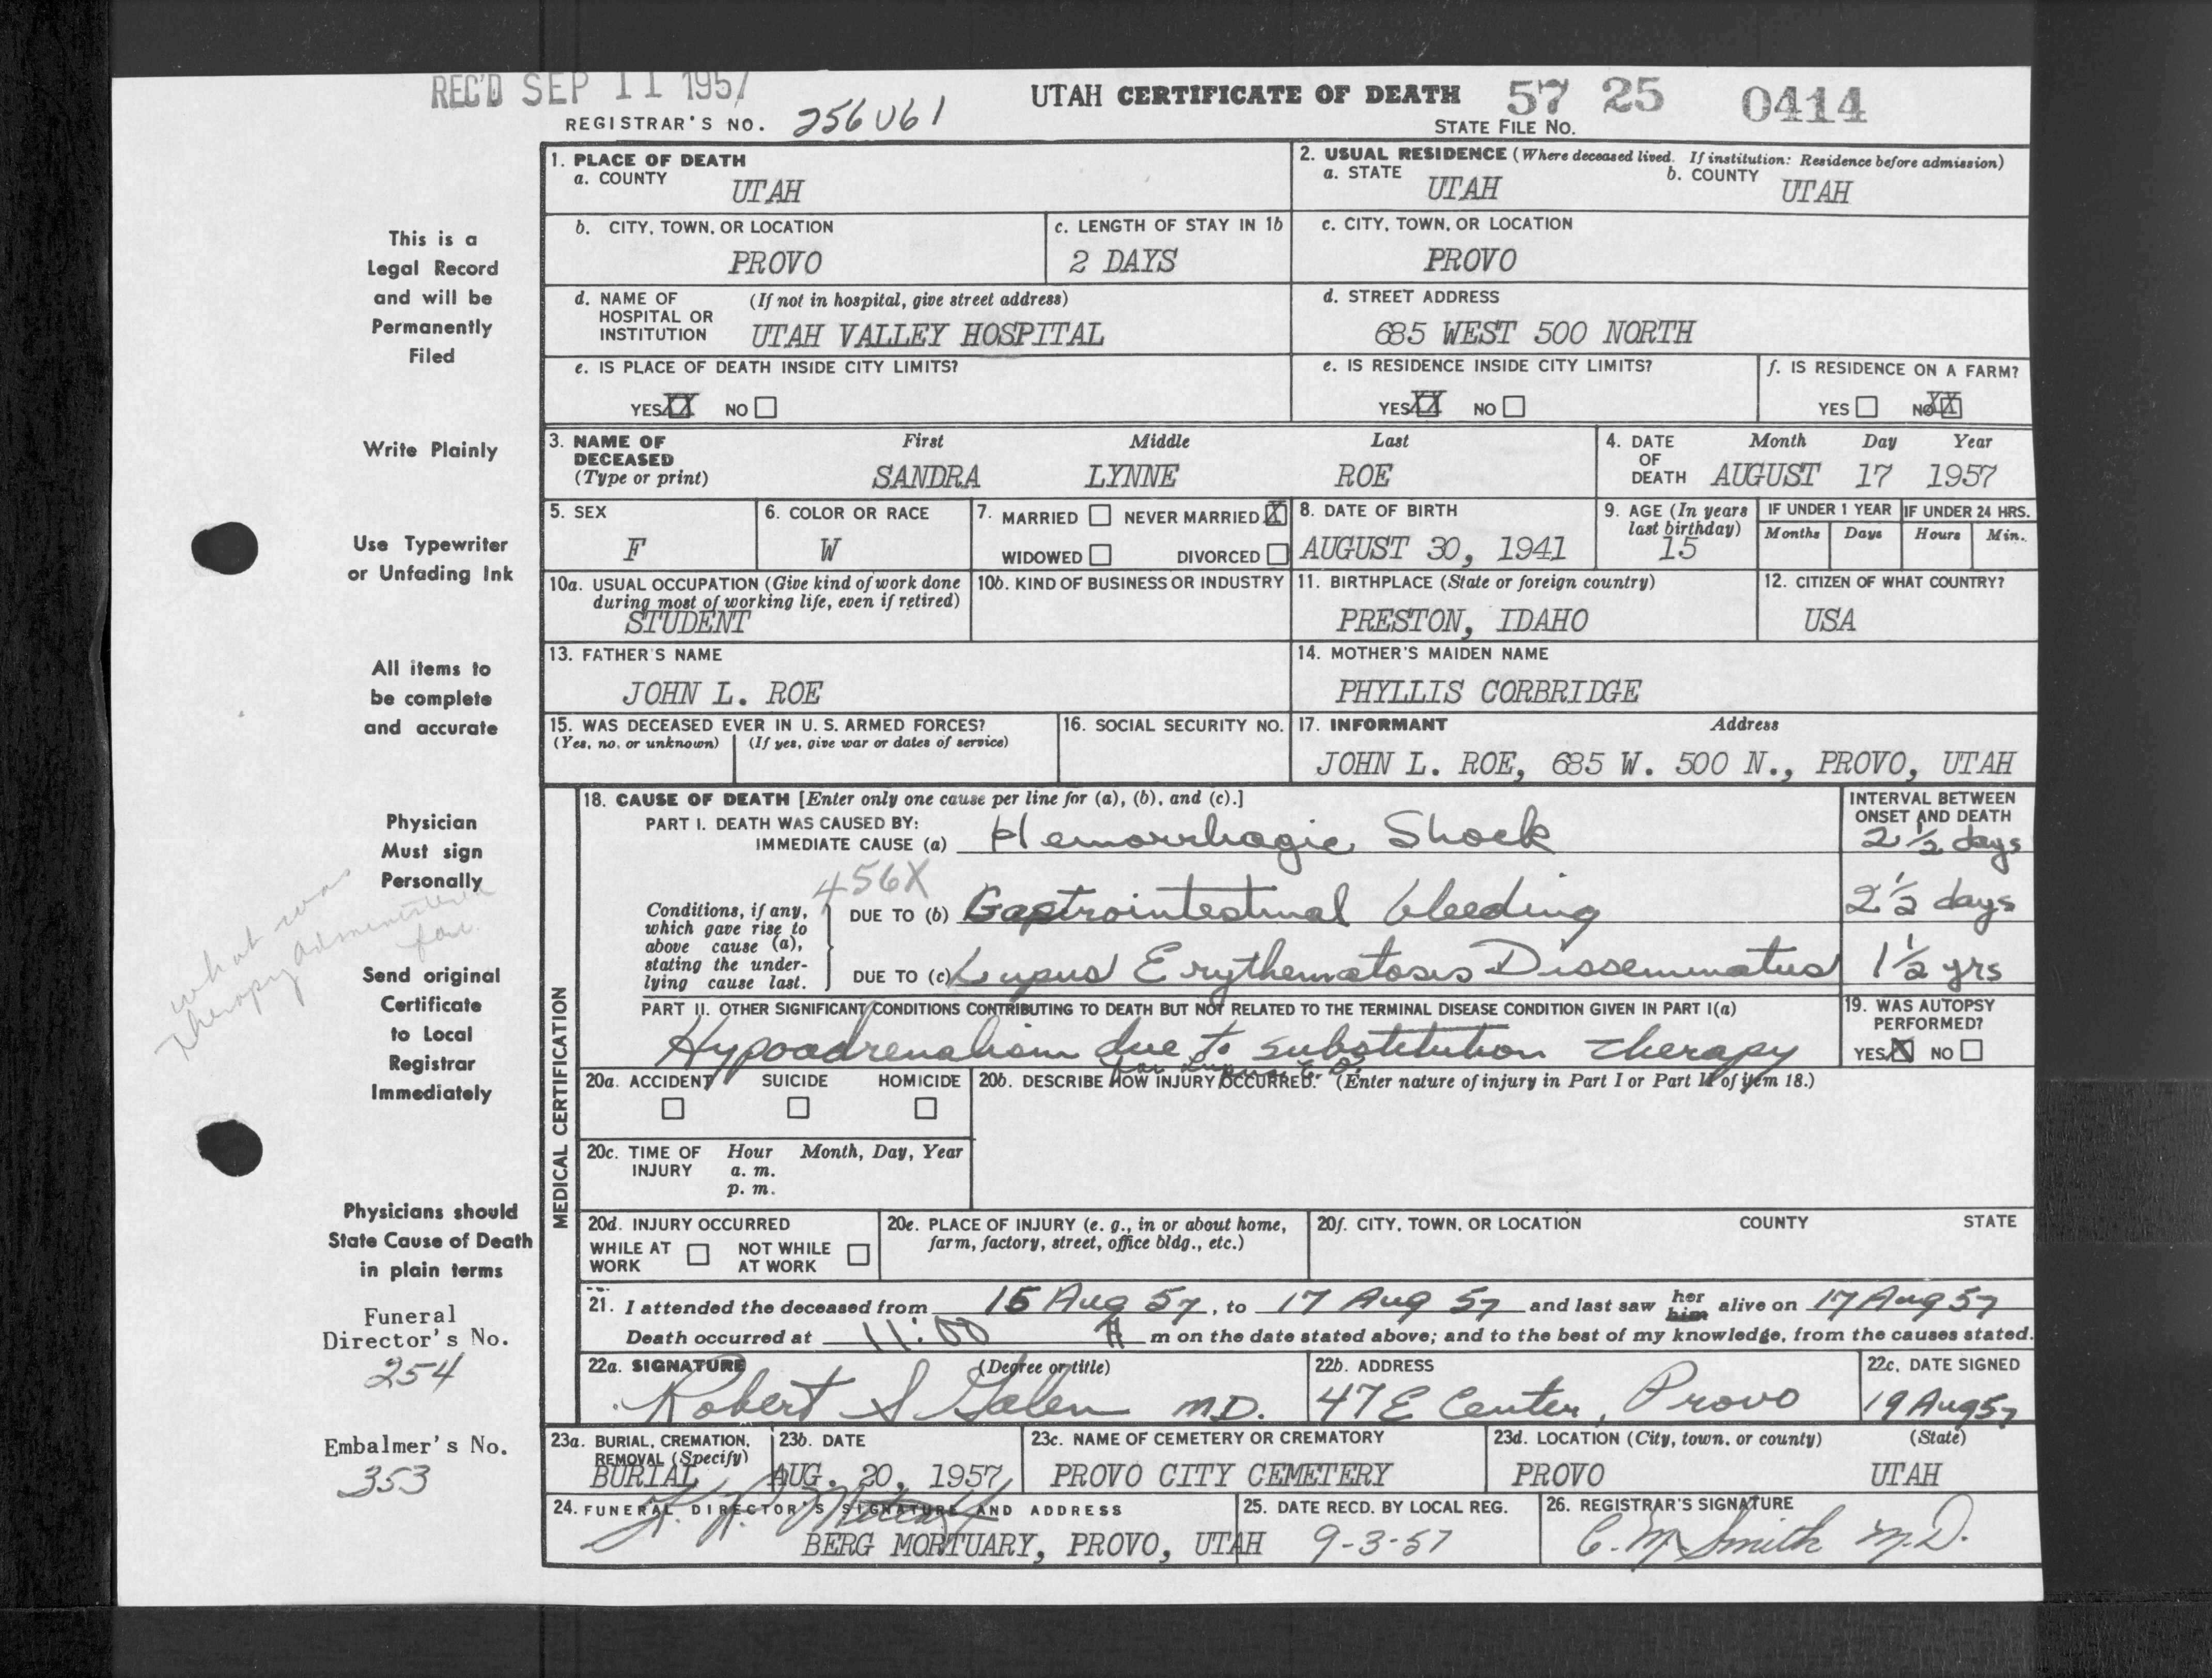 REC'D SEP 11 1957
UTAH CERTIFICATE OF DEATH 57 25 0414
REGISTRAR'S NO. 256061
STATE FILE NO.
1. PLACE OF DEATH
a. COUNTY
UTAH
2. USUAL RESIDENCE (Where deceased lived. If institution: Residence before admission)
a. STATE UTAH b. COUNTY UTAH
b. CITY, TOWN, OR LOCATION
PROVO
c. LENGTH OF STAY IN 1b
2 DAYS
c. CITY, TOWN, OR LOCATION
PROVO
d. NAME OF HOSPITAL OR INSTITUTION (If not in hospital, give street address)
UTAH VALLEY HOSPITAL
d. STREET ADDRESS
685 WEST 500 NORTH
e. IS PLACE OF DEATH INSIDE CITY LIMITS?
YES XX NO
e. IS RESIDENCE INSIDE CITY LIMITS?
YES XX NO
f. IS RESIDENCE ON A FARM?
YES NO XX
3. NAME OF DECEASED (Type or print)
First Middle Last
SANDRA LYNNE ROE
4. DATE OF DEATH Month Day Year
AUGUST 17 1957
5. SEX
F
6. COLOR OR RACE
W
7. MARRIED NEVER MARRIED X
WIDOWED DIVORCED
8. DATE OF BIRTH
AUGUST 30, 1941
9. AGE (In years last birthday)
15
IF UNDER 1 YEAR IF UNDER 24 HRS.
Months Days Hours Min.
10a. USUAL OCCUPATION (Give kind of work done during most of working life, even if retired)
STUDENT
10b. KIND OF BUSINESS OR INDUSTRY
11. BIRTHPLACE (State or foreign country)
PRESTON, IDAHO
12. CITIZEN OF WHAT COUNTRY?
USA
13. FATHER'S NAME
JOHN L. ROE
14. MOTHER'S MAIDEN NAME
PHYLLIS CORBRIDGE
15. WAS DECEASED EVER IN U. S. ARMED FORCES?
(Yes, no, or unknown) (If yes, give war or dates of service)
16. SOCIAL SECURITY NO.
17. INFORMANT Address
JOHN L. ROE, 685 W. 500 N., PROVO, UTAH
MEDICAL CERTIFICATION
18. CAUSE OF DEATH [Enter only one cause per line for (a), (b), and (c).]
INTERVAL BETWEEN ONSET AND DEATH
PART I. DEATH WAS CAUSED BY:
IMMEDIATE CAUSE (a) Hemorrhagic Shock 2 1/2 days
456X
Conditions, if any, which gave rise to above cause (a), stating the underlying cause last.
DUE TO (b) Gastrointestinal bleeding 2 1/2 days
DUE TO (c) Lupus Erythematosis Disseminatus 1 1/2 yrs
PART II. OTHER SIGNIFICANT CONDITIONS CONTRIBUTING TO DEATH BUT NOT RELATED TO THE TERMINAL DISEASE CONDITION GIVEN IN PART I(a)
Hypoadrenalism due to substitution therapy
for Lupus E. D.
19. WAS AUTOPSY PERFORMED?
YES X NO
20a. ACCIDENT SUICIDE HOMICIDE
20b. DESCRIBE HOW INJURY OCCURRED. (Enter nature of injury in Part I or Part II of item 18.)
20c. TIME OF INJURY Hour Month, Day, Year
a. m.
p. m.
20d. INJURY OCCURRED
WHILE AT WORK NOT WHILE AT WORK
20e. PLACE OF INJURY (e. g., in or about home, farm, factory, street, office bldg., etc.)
20f. CITY, TOWN, OR LOCATION COUNTY STATE
21. I attended the deceased from 15 Aug 57, to 17 Aug 57 and last saw her him alive on 17 Aug 57
Death occurred at 11:00 A m on the date stated above; and to the best of my knowledge, from the causes stated.
22a. SIGNATURE (Degree or title)
Robert S Galen M.D.
22b. ADDRESS
47 E Center, Provo
22c. DATE SIGNED
19 Aug 57
23a. BURIAL, CREMATION, REMOVAL (Specify)
BURIAL
23b. DATE
AUG. 20, 1957
23c. NAME OF CEMETERY OR CREMATORY
PROVO CITY CEMETERY
23d. LOCATION (City, town, or county) (State)
PROVO UTAH
24. FUNERAL DIRECTOR'S SIGNATURE AND ADDRESS
BERG MORTUARY, PROVO, UTAH
25. DATE RECD. BY LOCAL REG.
9-3-57
26. REGISTRAR'S SIGNATURE
C. M. Smith M.D.
This is a
Legal Record
and will be
Permanently
Filed
Write Plainly
Use Typewriter
or Unfading Ink
All items to
be complete
and accurate
Physician
Must sign
Personally
what was
therapy administered
for
Send original
Certificate
to Local
Registrar
Immediately
Physicians should
State Cause of Death
in plain terms
Funeral
Director's No.
254
Embalmer's No.
353